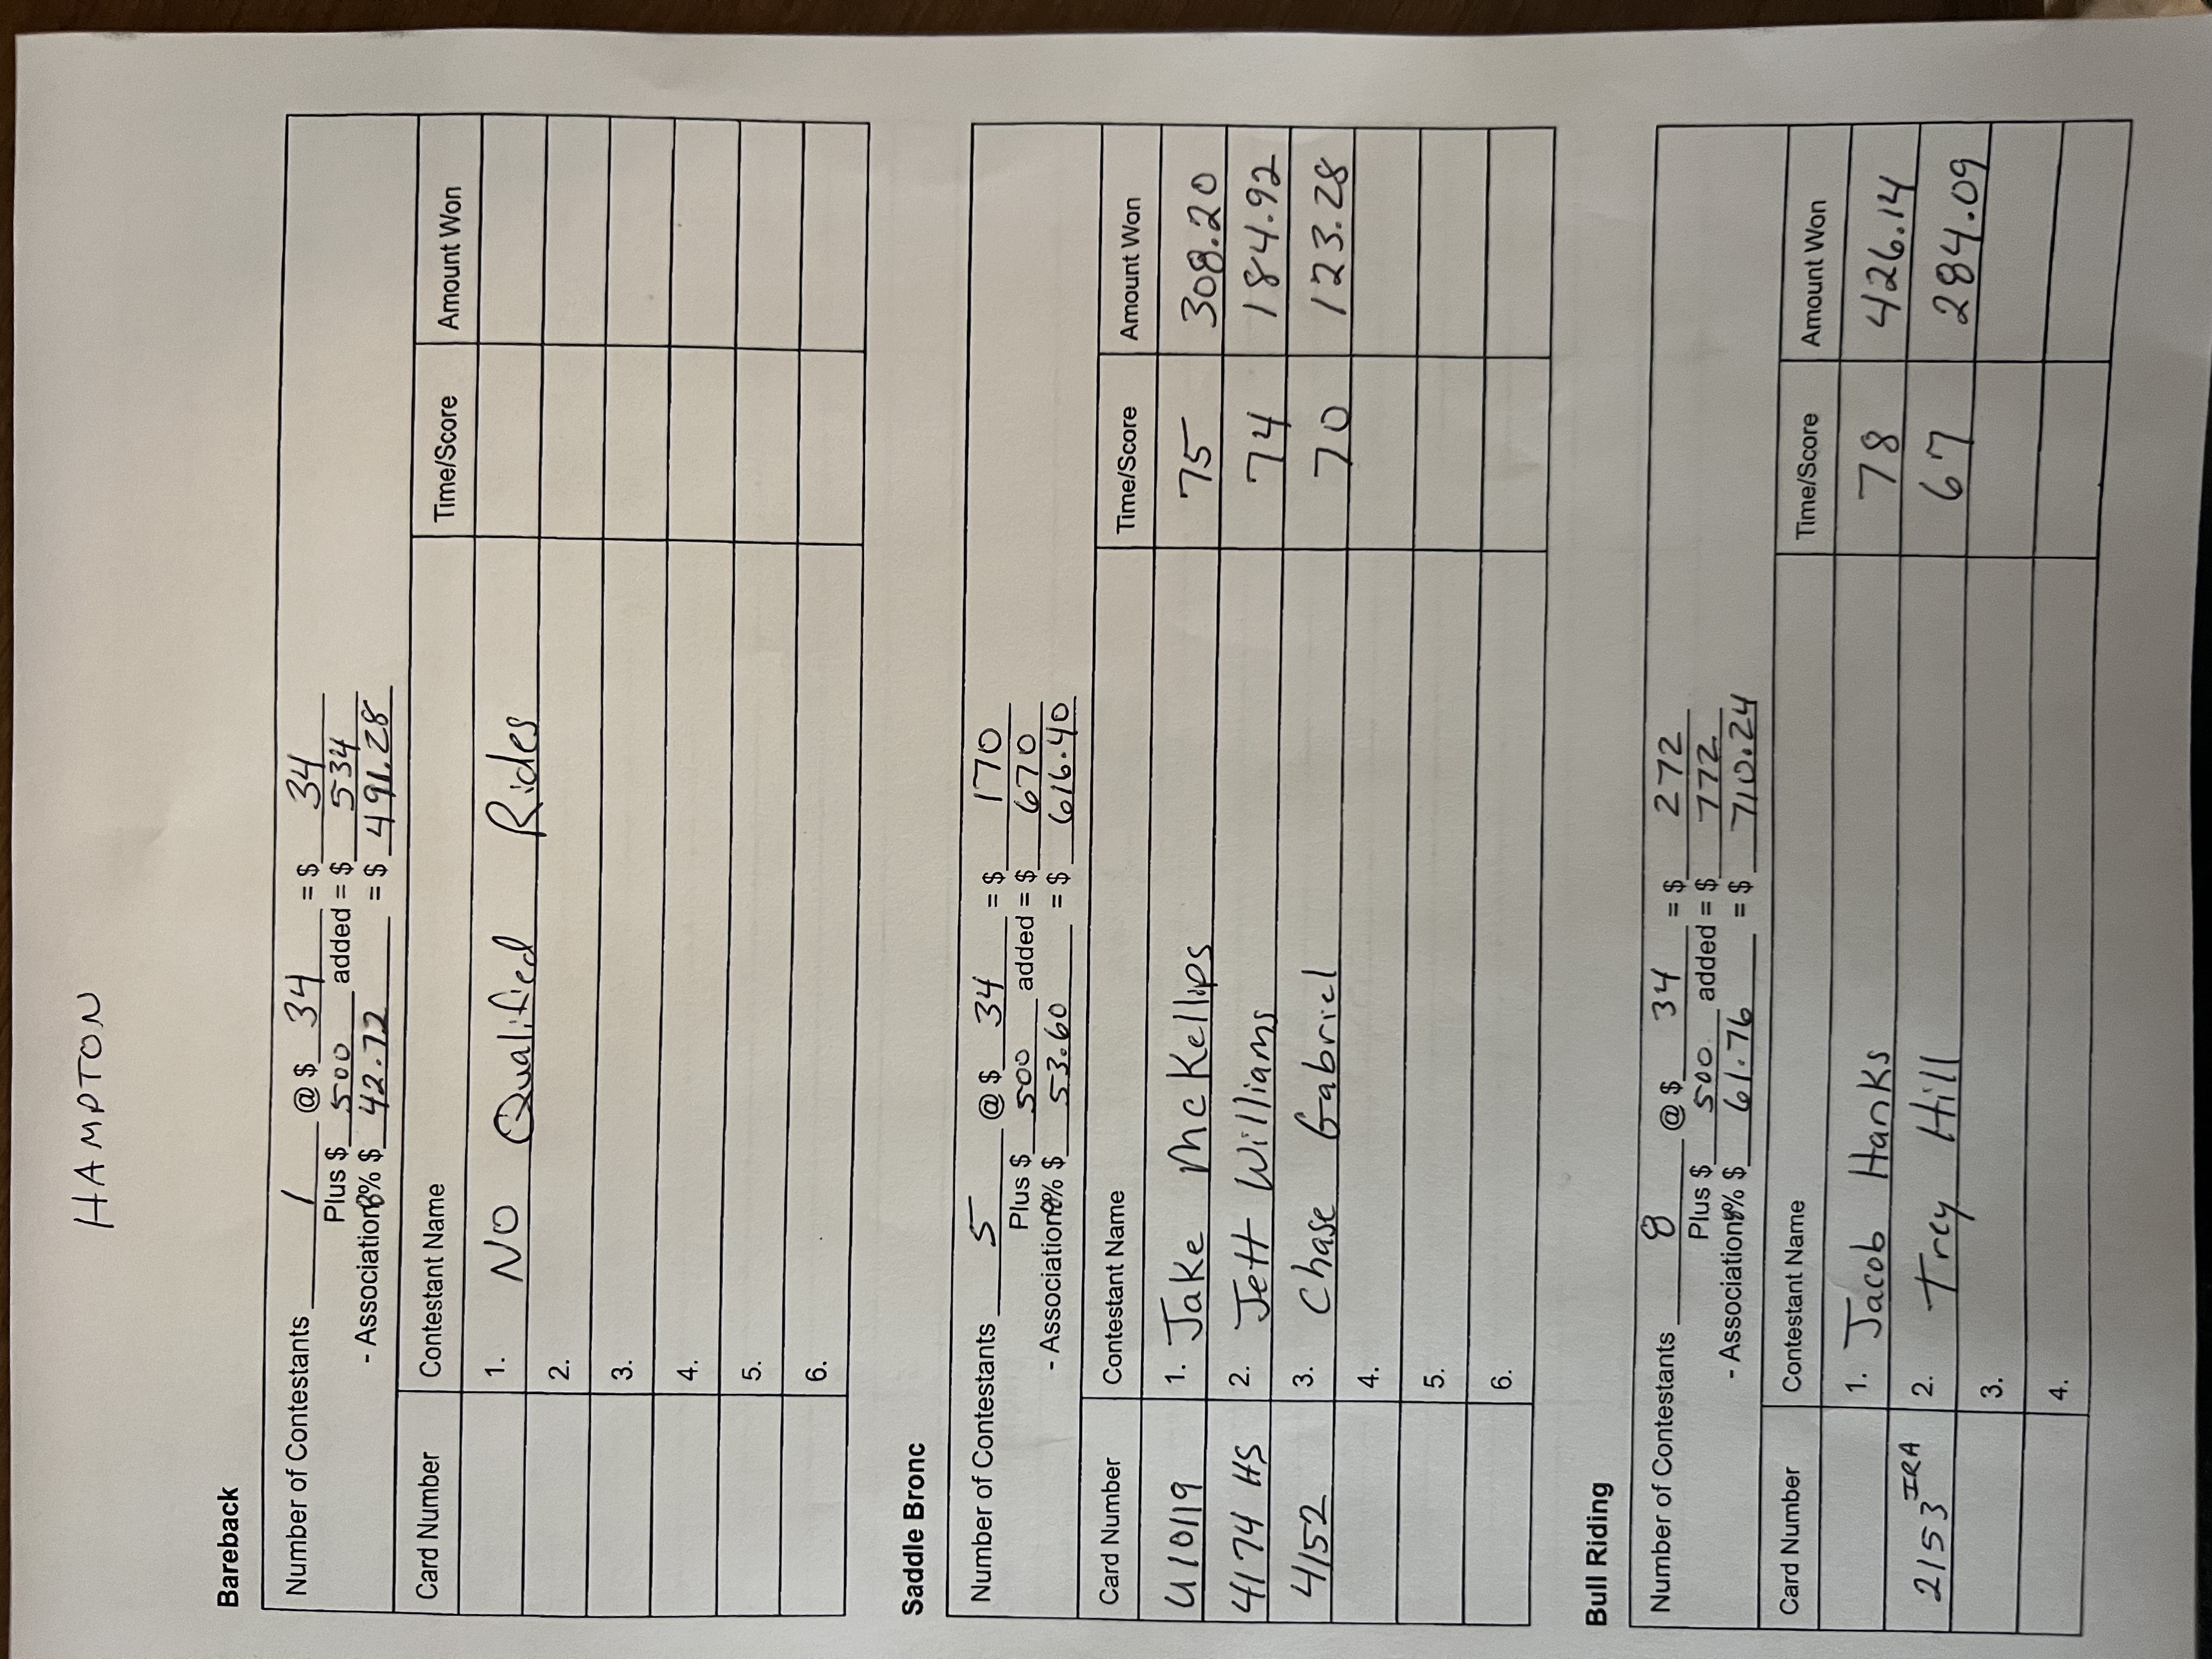 HAMPTON
Bareback
Number of Contestants 1 @ $ 34 = $ 34
Plus $ 500 added = $ 534
- Association 8% $ 42.72 = $ 491.28
Card Number Contestant Name Time/Score Amount Won
1. NO Qualified Rides
2.
3.
4.
5.
6.
Saddle Bronc
Number of Contestants 5 @ $ 34 = $ 170
Plus $ 500 added = $ 670
- Association 8% $ 53.60 = $ 616.40
Card Number Contestant Name Time/Score Amount Won
U10119 1. Jake McKellips 75 308.20
4174 HS 2. Jett Williams 74 184.92
4152 3. Chase Gabriel 70 123.28
4.
5.
6.
Bull Riding
Number of Contestants 8 @ $ 34 = $ 272
Plus $ 500. added = $ 772.
- Association 8% $ 61.76 = $ 710.24
Card Number Contestant Name Time/Score Amount Won
1. Jacob Hanks 78 426.14
2153 IRA 2. Trey Hill 67 284.09
3.
4.